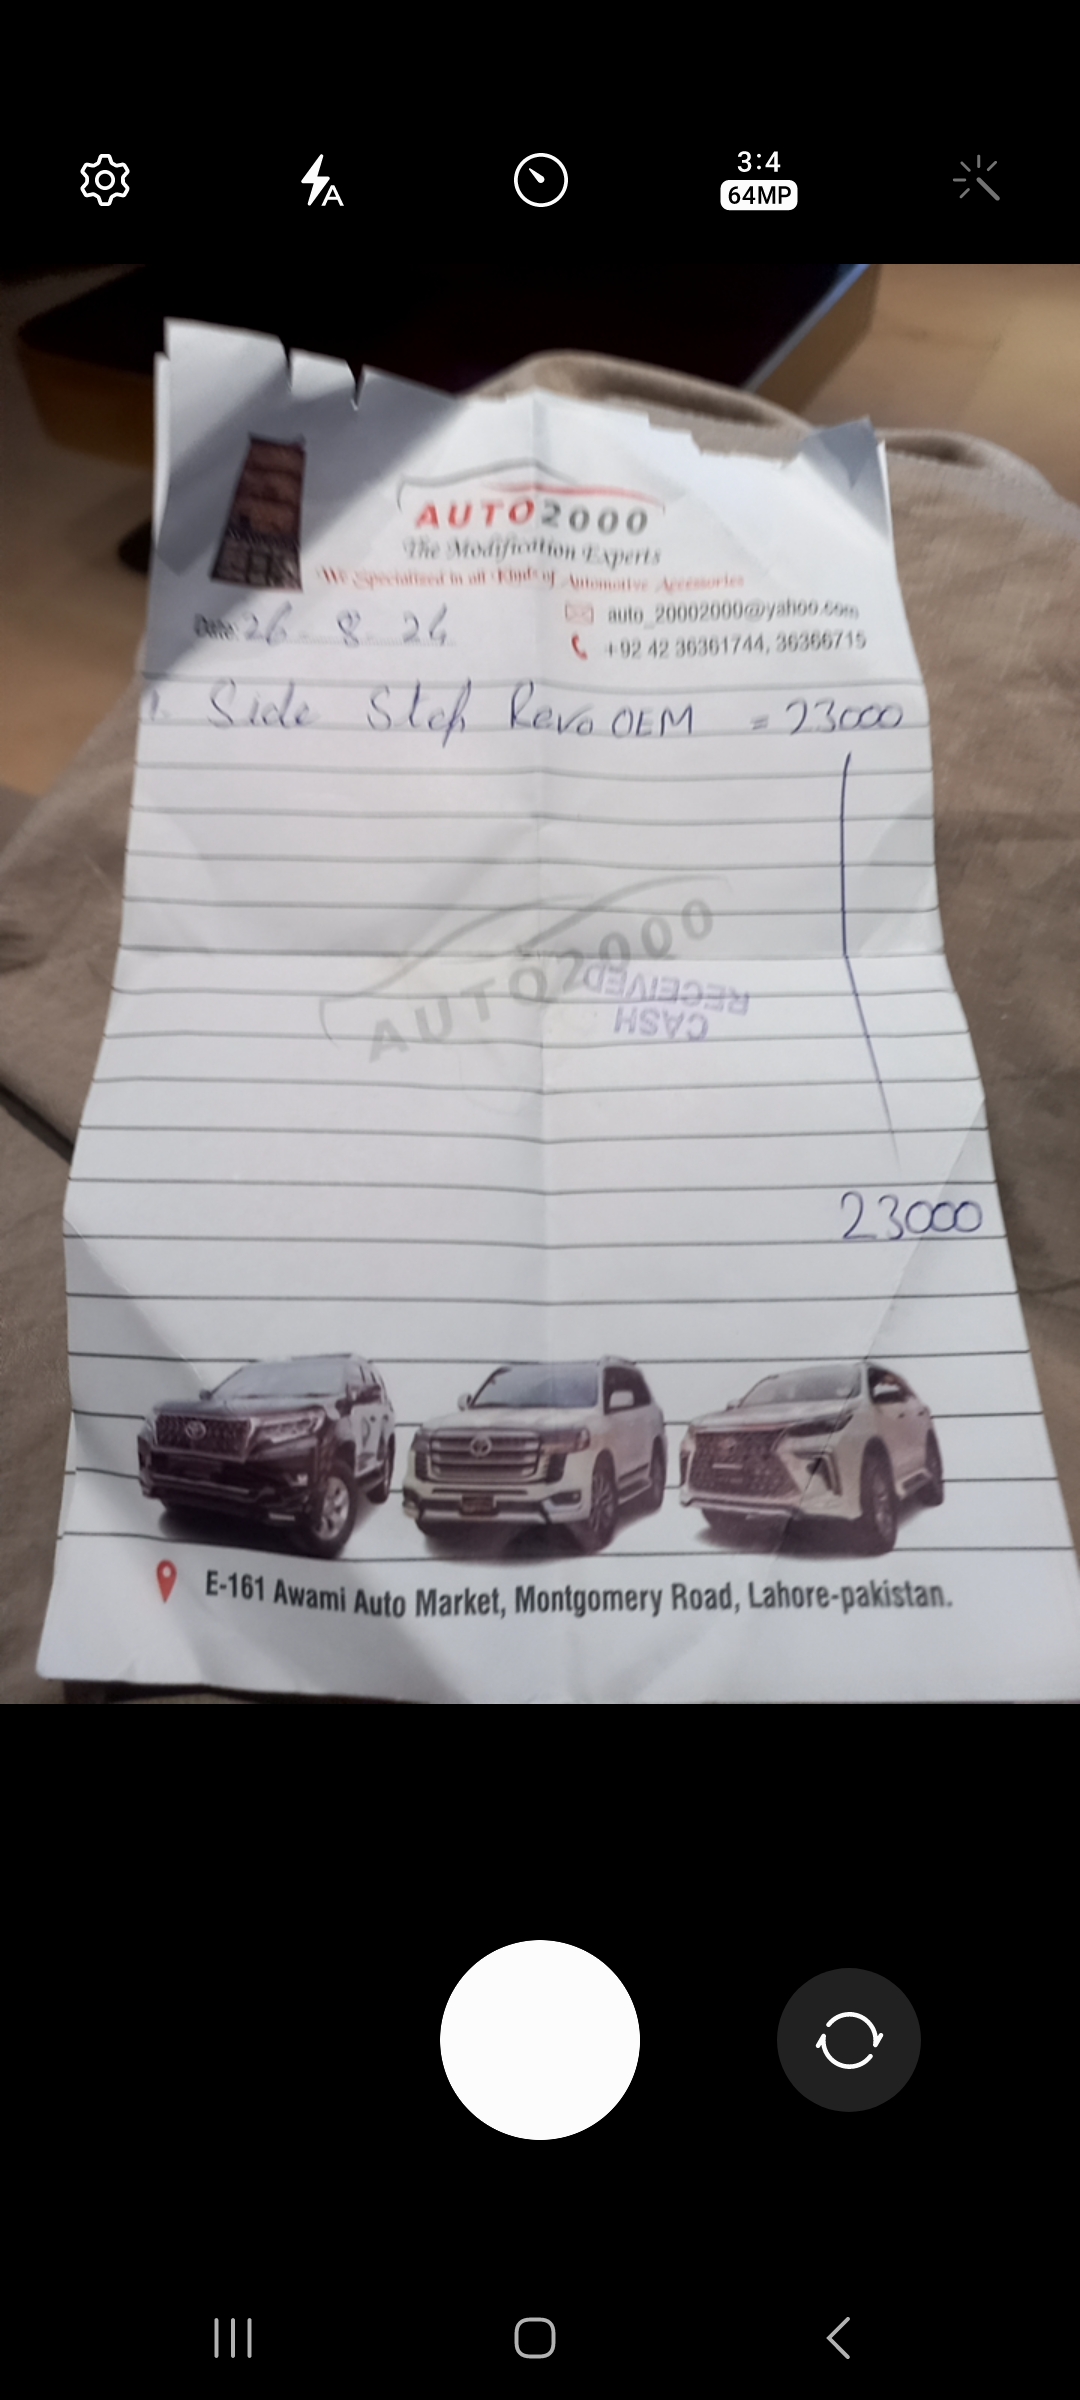 3:4
64MP
AUTO2000
The Modification Experts
We Specialized in all Kinds of Automotive Accessories
Date: 26-8-24
auto_20002000@yahoo.com
+92 42 36361744, 36366715
1. Side Step Revo OEM = 23000
AUTO2000
CASH
RECEIVED
23000
E-161 Awami Auto Market, Montgomery Road, Lahore-pakistan.